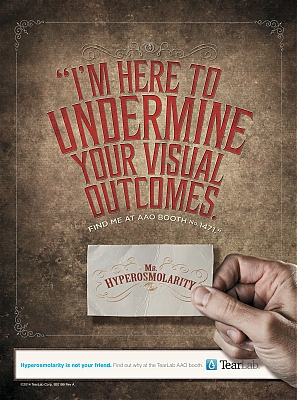 “I'M HERE TO
UNDERMINE
YOUR VISUAL
OUTCOMES.
FIND ME AT AAO BOOTH No. 1471.”
Ms.
HYPEROSMOLARITY
Hyperosmolarity is not your friend. Find out why at the TearLab AAO booth.
TearLab